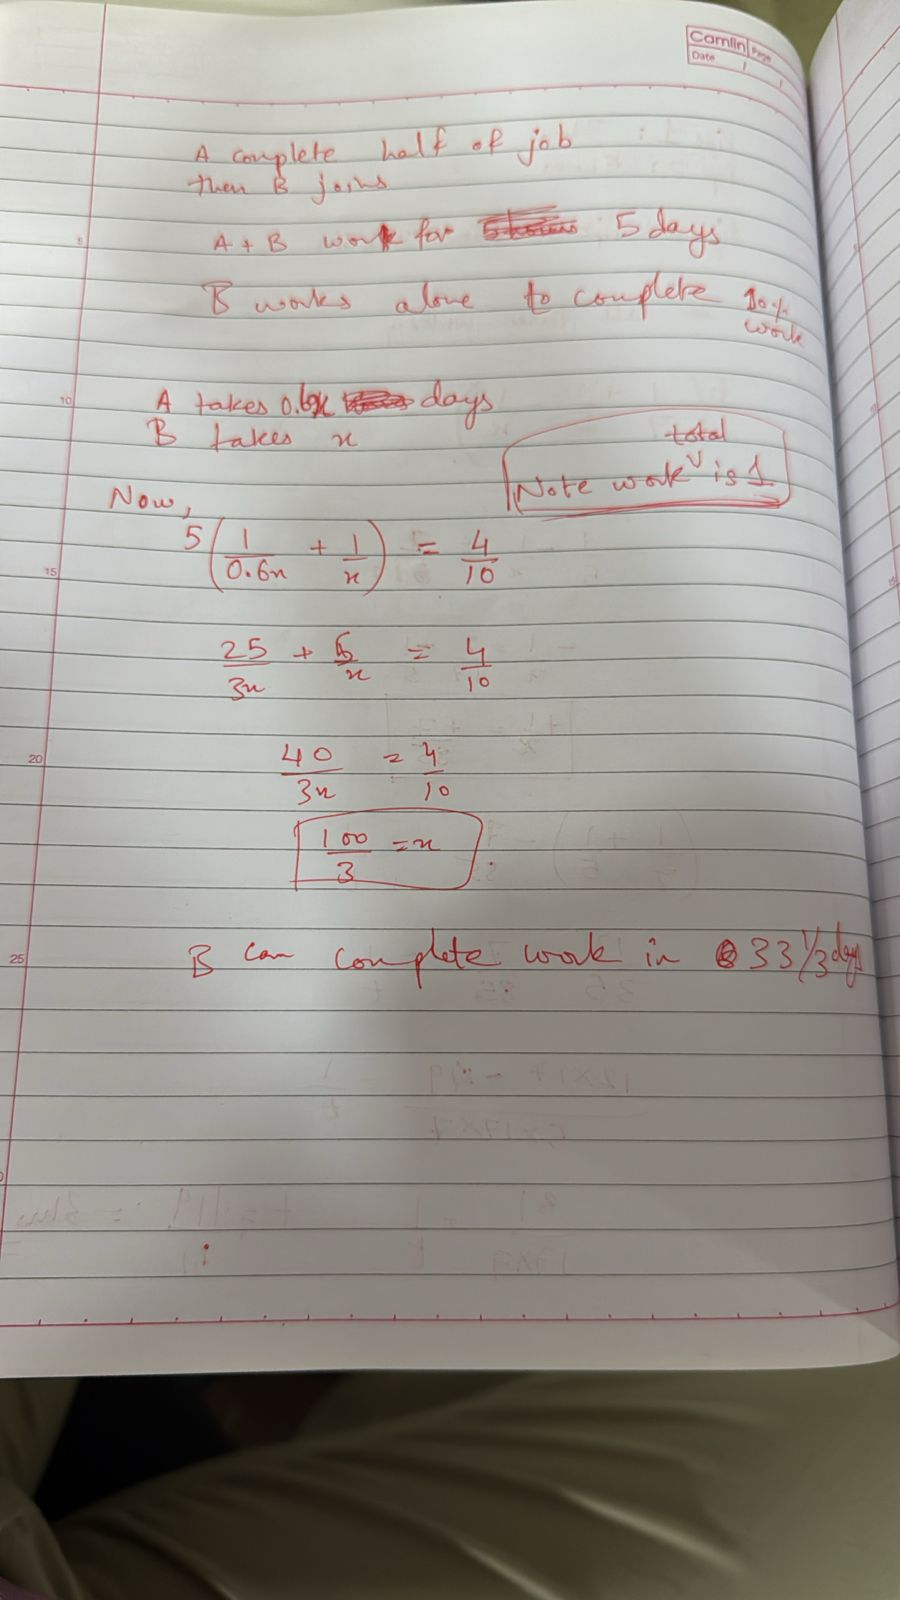 Camlin Page
Date / /
A complete half of job
then B joins
A + B work for 5 days
B works alone to complete 10%
work
A takes 0.6x days
B takes x
total
Note work is 1
Now,
5(1/0.6x + 1/x) = 4/10
25/3x + 5/x = 4/10
40/3x = 4/10
100/3 = x
B can complete work in 33 1/3 days
5
10
15
20
25